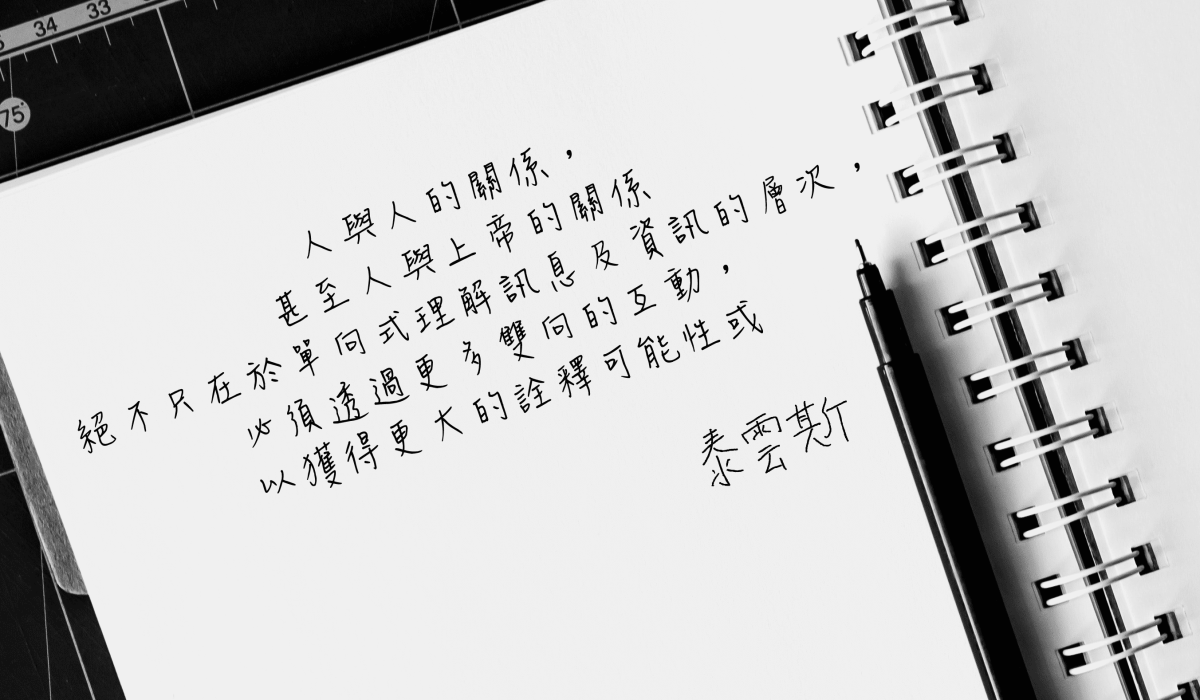 34 33
75°
人與人的關係，
甚至人與上帝的關係
絕不只在於單向式理解訊息及資訊的層次，
必須透過更多雙向的互動，
以獲得更大的詮釋可能性或
泰雲斯